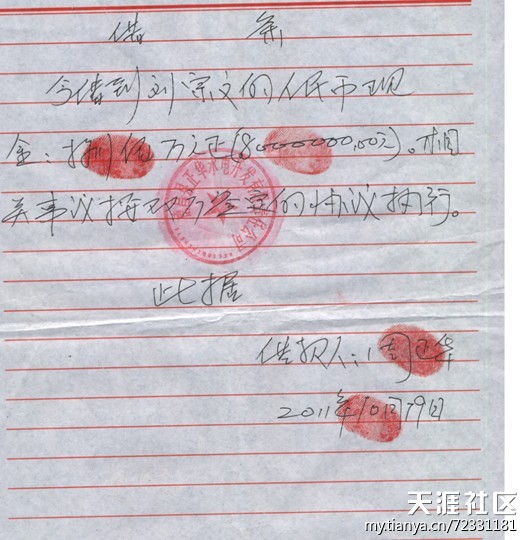 借 条
今借到刘宗文的人民币现
金：捌仟万元正(80000000.00元)。相
关事议按双方签定的协议执行。
正华水电开发有限公司
此据
借款人：周正华
2011年10月19日
天涯社区
my.tianya.cn/72331181